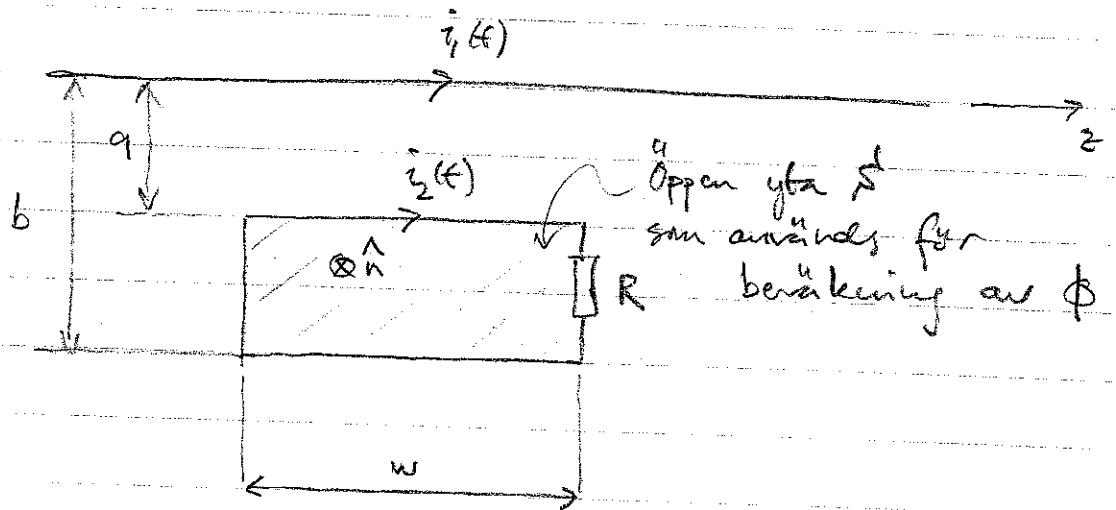 i₁(t)
z
a
b
i₂(t)
n̂
R
Öppen yta S
som används för
beräkning av ϕ
w